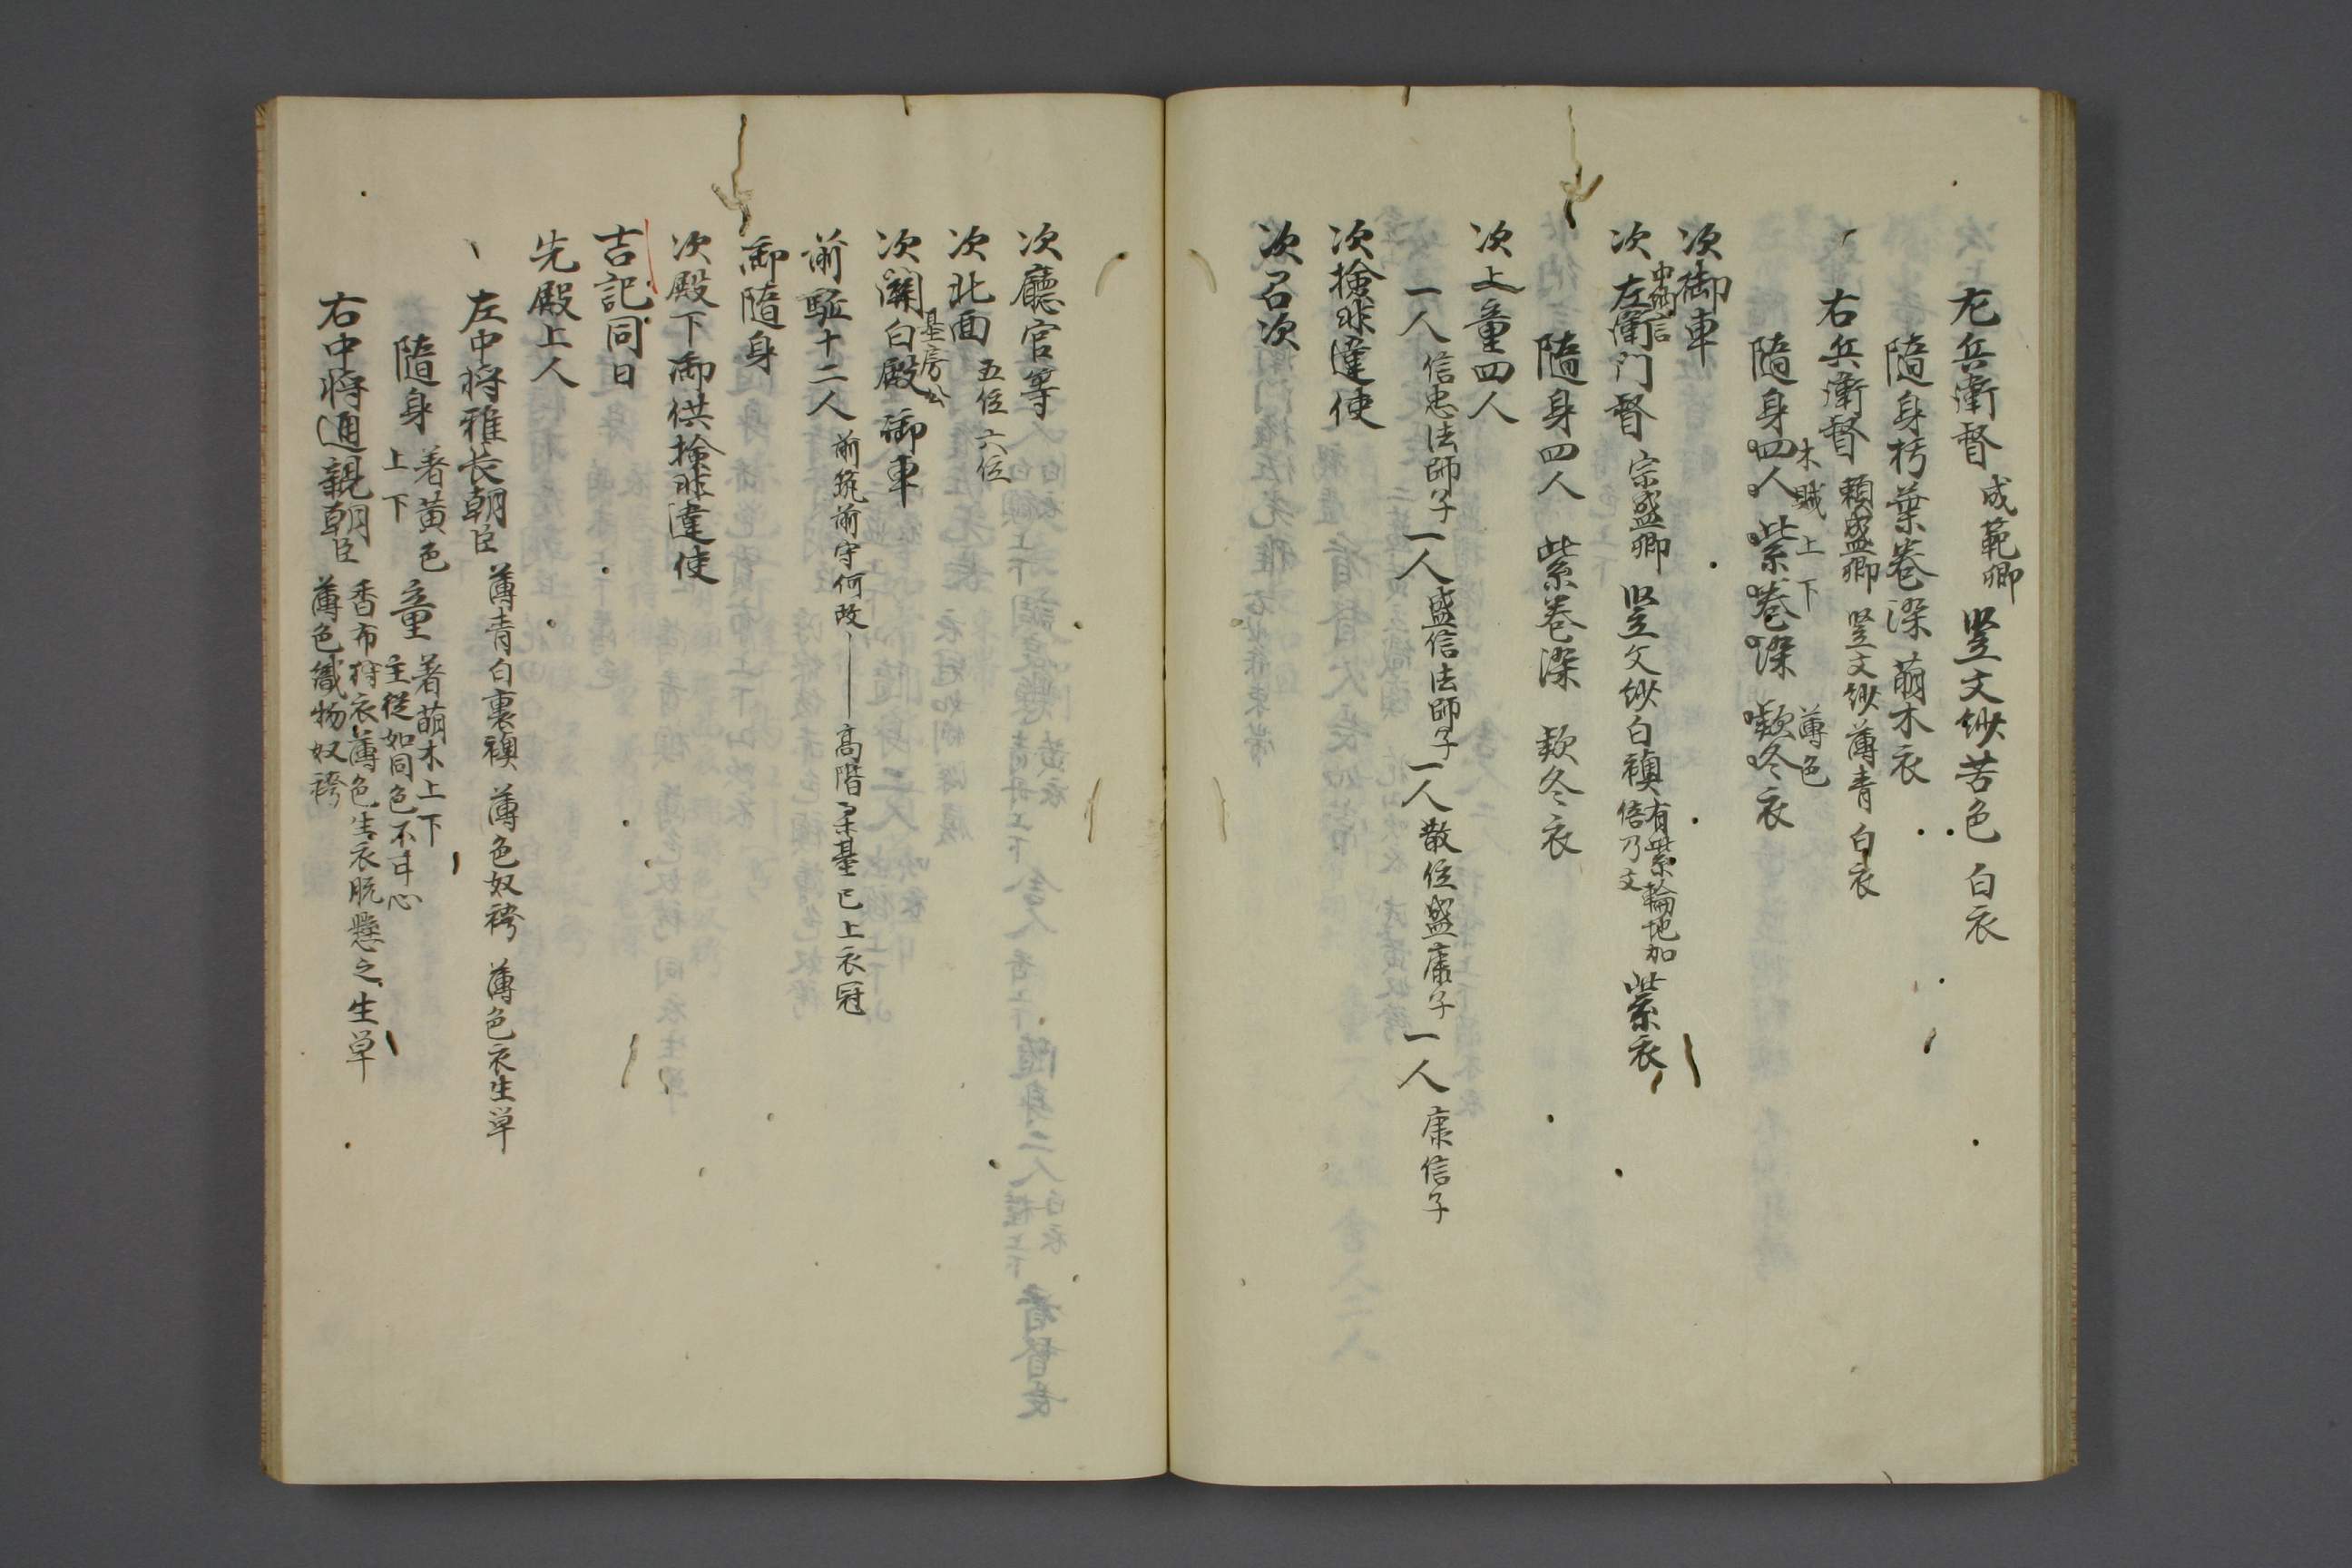 左兵衛督 成範卿 竪文紗苦色 白衣
隨身朽葉巻染 萠木衣
右兵衛督 頼盛卿 竪文紗薄青 白衣
木賊上下 薄色
隨身四人 紫巻染 欵冬衣
次御車
中納言
次左衛門督 宗盛卿 竪文紗白襖 有紫輪地加 倍乃文 紫衣
隨身四人 紫巻染 欵冬衣
次上童四人
一人 信忠法師子 一人 盛信法師子 一人 散位盛康子 一人 康信子
次撿非違使
次召次
次廳官等
次北面 五位 六位
基房公
次關白殿御車
前駈十二人 前筑前守何改――高階 基 已上衣冠
御隨身
次殿下御供撿非違使
吉記同日
先殿上人
左中将雅長朝臣 薄青白裏襖 薄色奴袴 薄色衣生単
隨身 着黄色上下 童 着萠木上下 主従如同色不 心
右中将通親朝臣 香布狩衣薄色生衣脱懸之生単 薄色織物奴袴